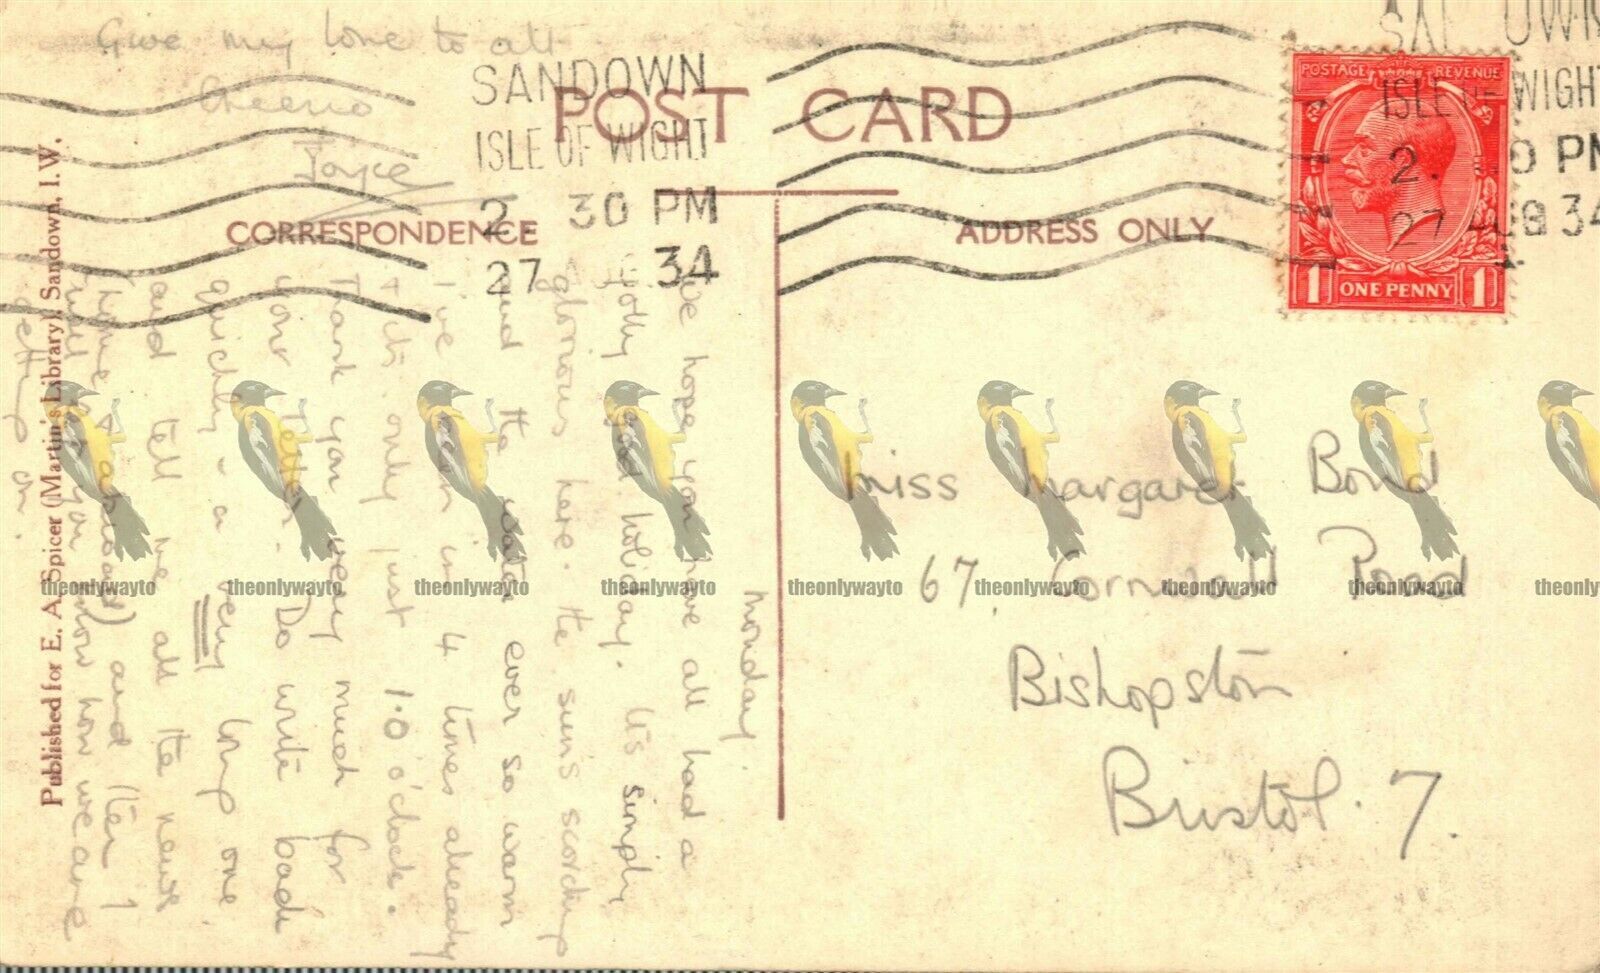 Give my love to all
Cheerio
Joyce
SANDOWN
ISLE OF WIGHT
2. 30 PM
27 AUG 34
POST CARD
SANDOWN
ISLE OF WIGHT
2. 30 PM
27 AUG 34
POSTAGE REVENUE
1 ONE PENNY 1
CORRESPONDENCE
ADDRESS ONLY
Published for E. A. Spicer (Martin's Library), Sandown, I.W.
Monday.
We hope you have all had a
jolly good holiday. It's simply
glorious here. the sun's scorching
and the water ever so warm
I've been in 4 times already
& it's only just 1.0 o'clock.
Thank you very much for
your letter. Do write back
quickly - a very long one
and tell me all the news
(home & abroad) and then I
will let you know how we are
getting on.
Miss Margaret Bond
67. Cornwall Road
Bishopston
Bristol. 7.
theonlywayto
theonlywayto
theonlywayto
theonlywayto
theonlywayto
theonlywayto
theonlywayto
theonlywayto
theonlywayto